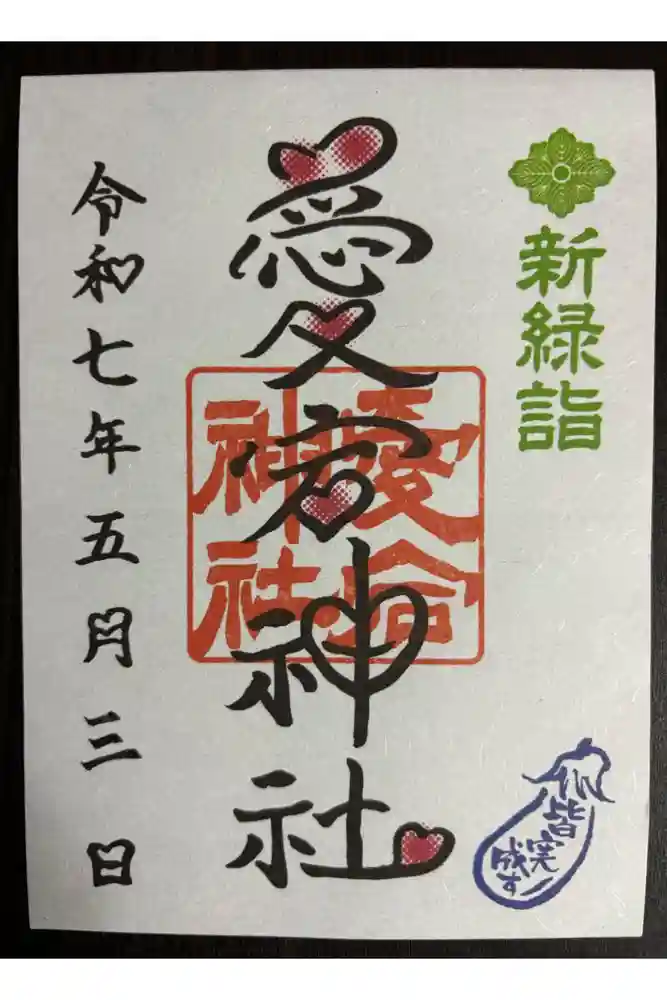 新緑詣
皆
完
成す
愛宕神社
愛宕
神社
令和七年五月三日